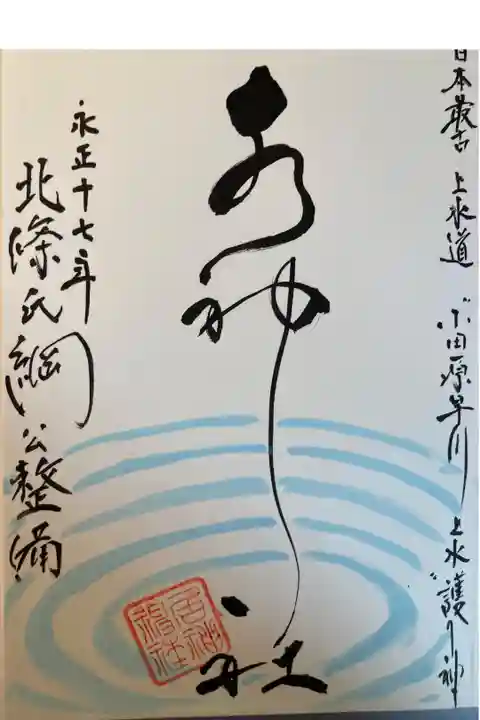 日本最古 上水道 〝小田原早川 上水〟護り神
水神社
永正十七年
北條氏綱公整備
居神
神社